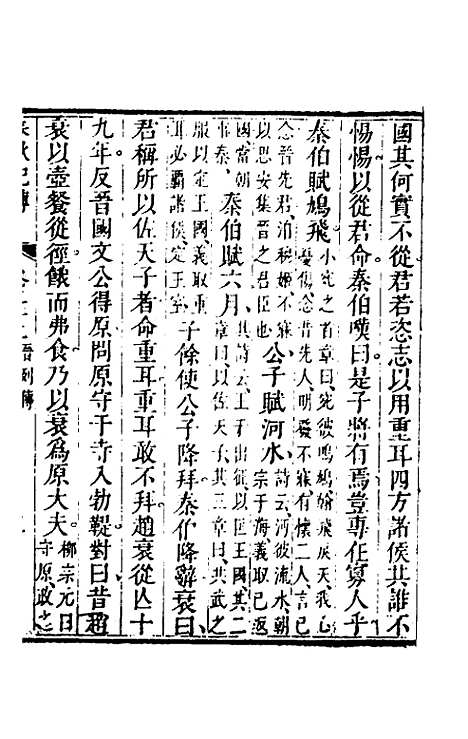 國其何實不從君若恣志以用重耳四方諸侯其誰不
惕惕以從君命秦伯嘆曰是子將有焉豈專在寡人乎
秦伯賦鳩飛小宛之首章曰宛彼鳴鳩翰飛戾天我心憂傷念昔先人明發不寐有懷二人言己
念晉先君洎穆姬不寐以思安集晉之君臣也公子賦河水詩云沔彼流水朝宗于海義取己返
國當朝事秦秦伯賦六月其詩云王于出征以匡王國其二章曰以佐天子其三章曰共武之
服以定王國義取重耳必霸諸侯定王室子餘使公子降拜秦伯降辭衰曰
君稱所以佐天子者命重耳重耳敢不拜趙衰從亡十
九年反晉國文公得原問原守于寺人勃鞮對曰昔趙
衰以壺餐從徑餓而弗食乃以衰爲原大夫柳宗元曰守原政之
春秋紀傳 列傳